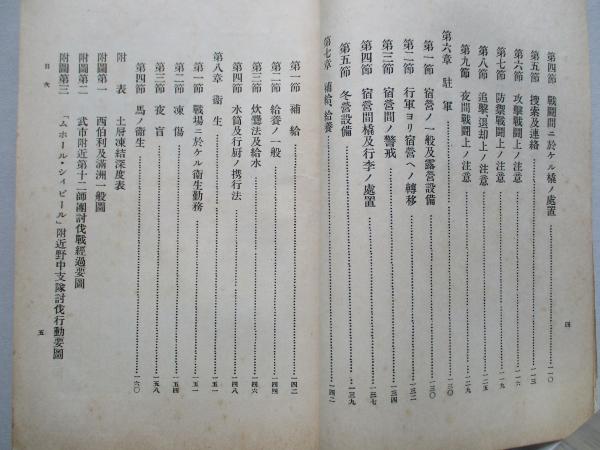 第四節 戰鬪間ニ於ケル橇ノ處置……一一〇
第五節 搜索及連絡……一一三
第六節 攻擊戰鬪上ノ注意……一一六
第七節 防禦戰鬪上ノ注意……一一九
第八節 追擊、退却上ノ注意……一二五
第九節 夜間戰鬪上ノ注意……一二九
第六章 駐軍……一三〇
第一節 宿營ノ一般及露營設備……一三〇
第二節 行軍ヨリ宿營ヘノ轉移……一三三
第三節 宿營間ノ警戒……一三四
第四節 宿營間橇及行李ノ處置……一三七
第五節 冬營設備……一三九
第七章 補給、給養……一四二
四
第一節 補給……一四二
第二節 給養ノ一般……一四四
第三節 炊爨法及給水……一四六
第四節 水筒及行厨ノ携行法……一四八
第八章 衞生……一五一
第一節 戰場ニ於ケル衞生勤務……一五一
第二節 凍傷……一五四
第三節 夜盲……一五八
第四節 馬ノ衞生……一六〇
附表 土層凍結深度表
附圖第一 西伯利及滿洲一般圖
附圖第二 武市附近第十二師團討伐戰經過要圖
附圖第三 「ムホール・シィビール」附近野中支隊討伐行動要圖
目次
五